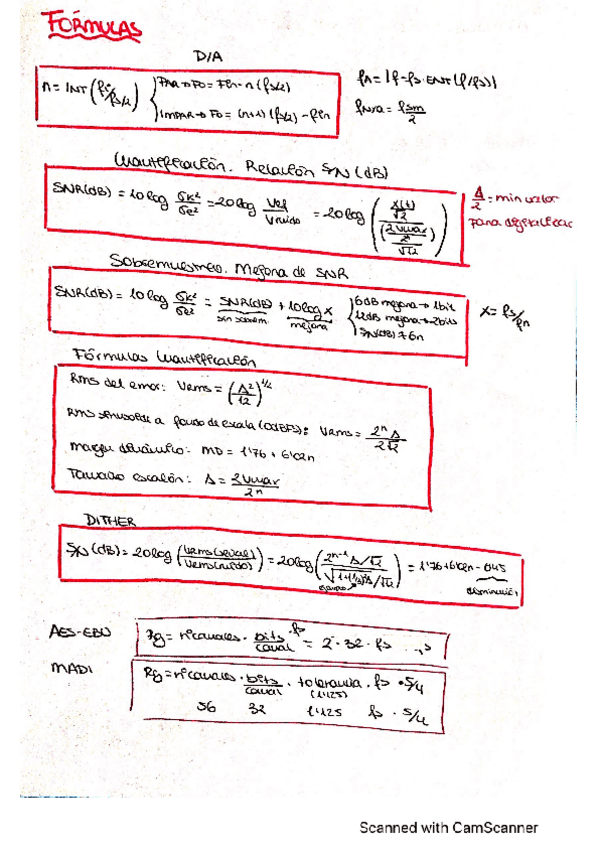 FÓRMULAS
D/A
n = INT (fi / fs/2) { PAR → Fo = Fin - n (fs/2)
IMPAR → Fo = (n+1) (fs/2) - fin
fA = |f - fs · ENT (f/fs)|
fNya = fsm / 2
Cuantificación. Relación S/N (dB)
SNR(dB) = 10 log σx² / σe² = 20 log Vef / Vruido = 20 log ( X(t)/√2 / (2Vmax / 2ⁿ / √12) )
Δ/2 = min valor
para digitalizar
Sobremuestreo. Mejora de SNR
SNR(dB) = 10 log σx² / σe² = SNR(dB) + 10 log X
sin sobrem. mejora
6dB mejora → 1bit
12dB mejora → 2bits
S/N(dB) ≠ 6n
X = fs / fn
Fórmulas Cuantificación
Rms del error: Vrms = (Δ² / 12)^1/2
Rms senusoide a fondo de escala (0dBFS): Vrms = 2ⁿ Δ / 2√2
Margen dinámico: MD = 1'76 + 6'02n
Tamaño escalón: Δ = 2Vmax / 2ⁿ
DITHER
S/N (dB) = 20 log (Vrms(señal) / Vrms(ruido)) = 20 log (2ⁿ⁻¹ Δ/√2 / √1+(1/3)² Δ/√12) = 1'76 + 6'02n - 0'45
disminución
AES-EBU
Rg = nº canales · bits / canal · fs = 2 · 32 · fs
MADI
Rg = nº canales · bits / canal · tolerancia · fs · 5/4
(1'125)
56 32 1'125 fs · 5/4
Scanned with CamScanner